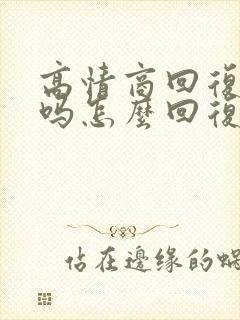 高情商回復
吗怎麼回復
佔在邊緣的蝸